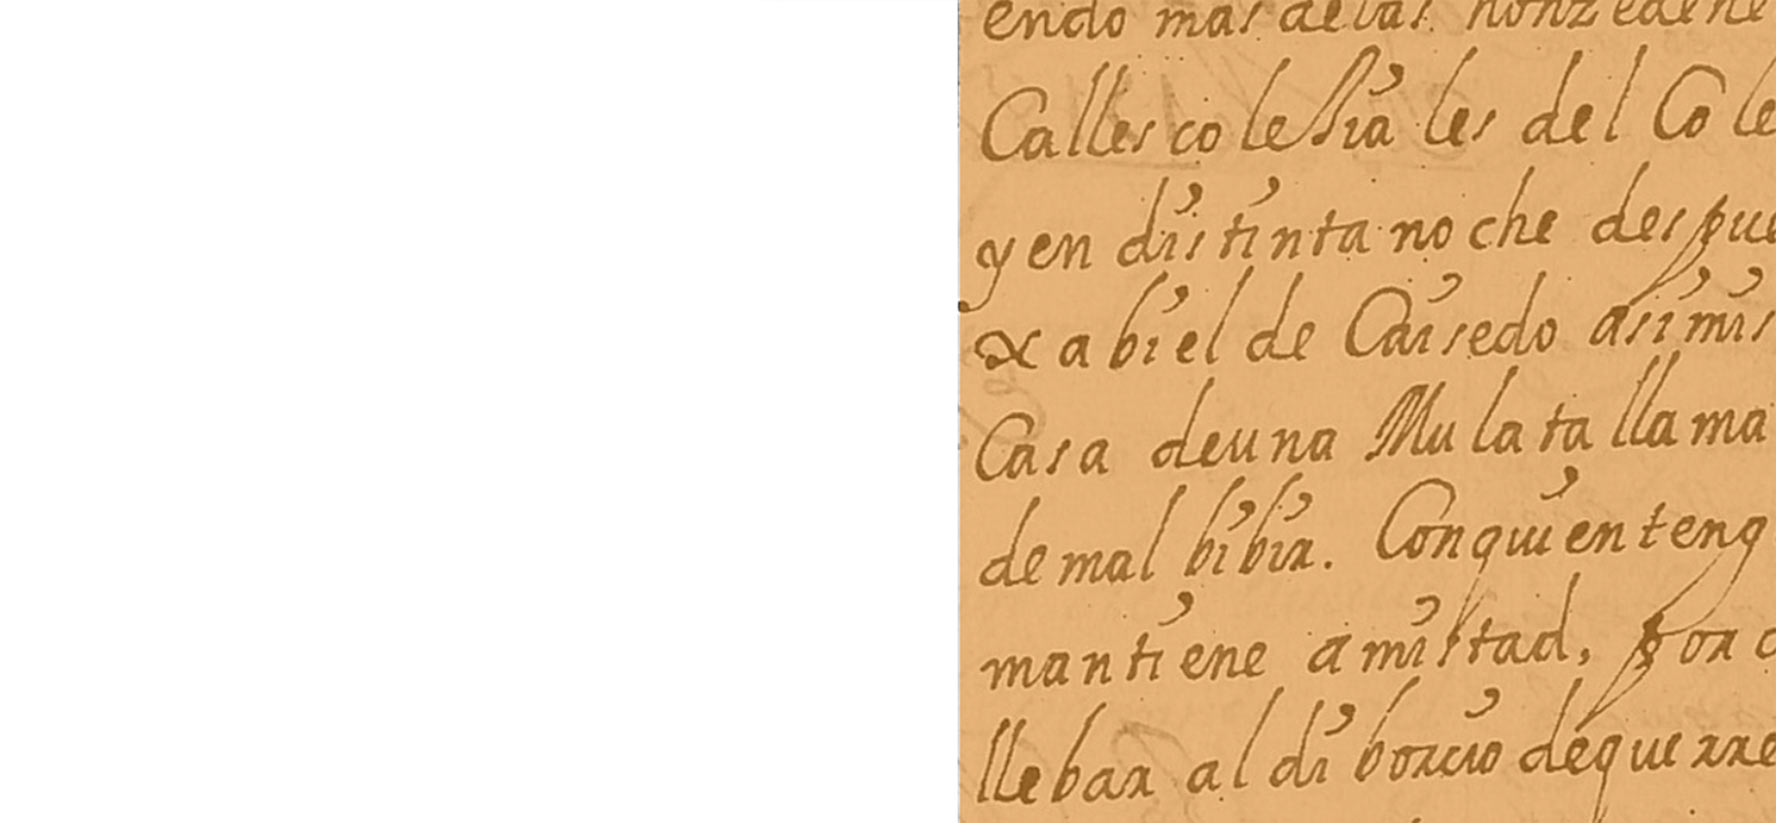 endo mas de las nonze de ne
Calles colesia les del Cole
y en distinta noche despue
xabiel de Caisedo asi mis
Casa de una Mulata llama
de mal bibir. Con quien teng
mantiene amistad, por
llebar al diborcio de que rre